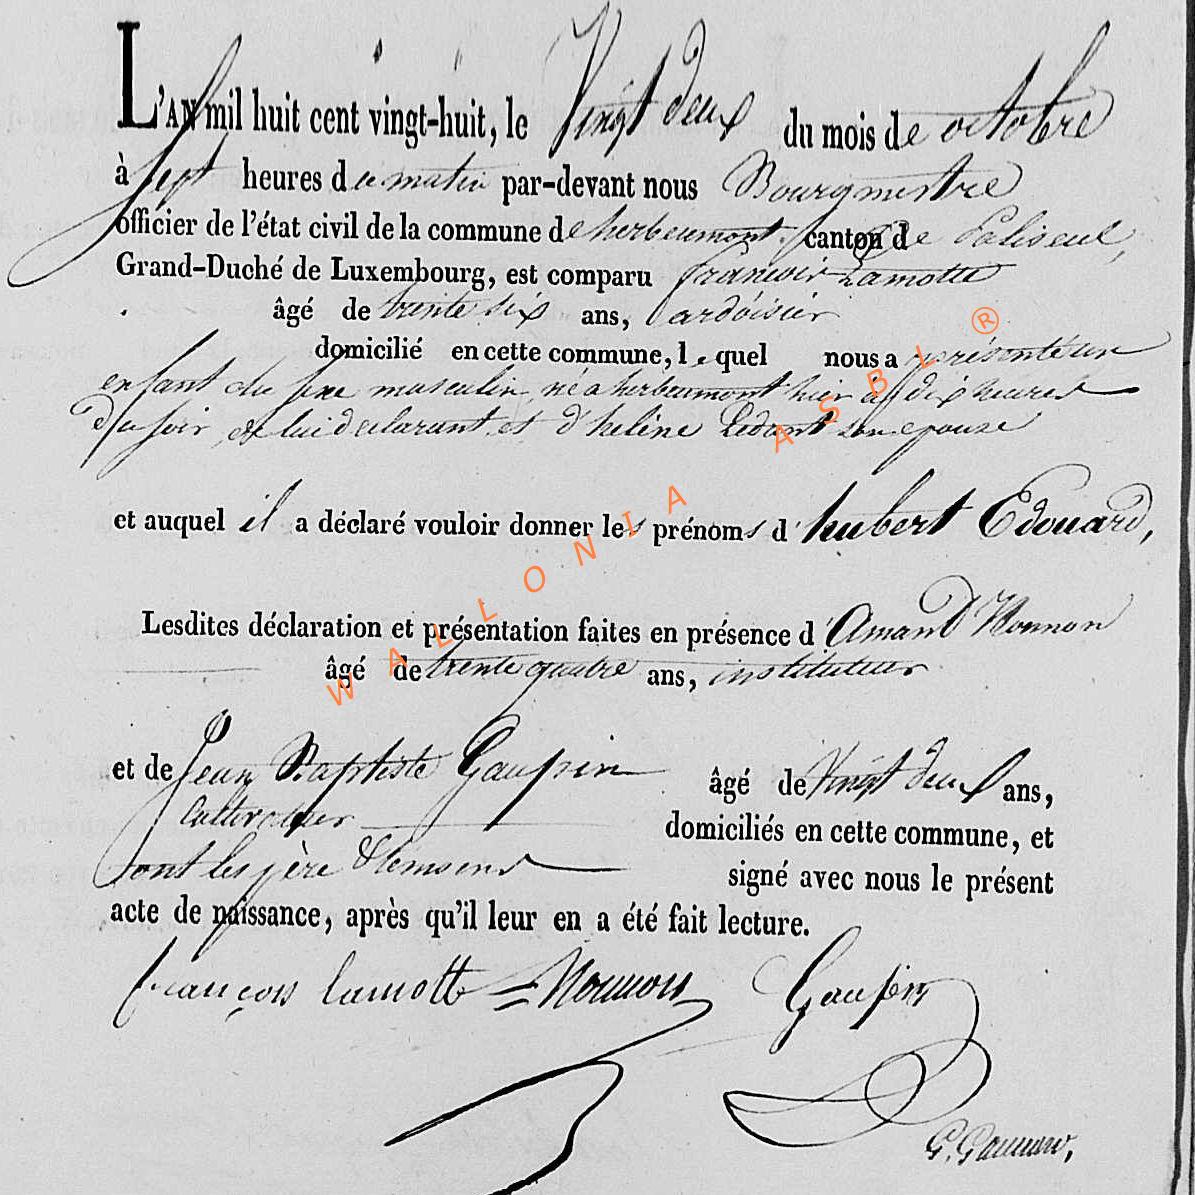 L'AN mil huit cent vingt-huit, le Vingt deux du mois de octobre
à sept heures du matin par-devant nous Bourgmestre
officier de l'état civil de la commune de herbeumont canton de Paliseul,
Grand-Duché de Luxembourg, est comparu françois Lamotte
âgé de trente six ans, ardoisier
domicilié en cette commune, lequel nous a présenté un
enfant du sexe masculin, né a herbeumont hier à dix heures
du soir, de lui déclarant et d'hélène Ledant son epouse
et auquel il a déclaré vouloir donner les prénoms d'hubert Edouard,
Lesdites déclaration et présentation faites en présence d'Amand Nonnon
âgé de trente quatre ans, instituteur
et de Jean Baptiste Gaupin âgé de Vingt deux ans,
cultivateur domiciliés en cette commune, et
sont les père & témoins signé avec nous le présent
acte de naissance, après qu'il leur en a été fait lecture.
françois lamotte Nonnon Gaupin
WALLONIA ASBL ®